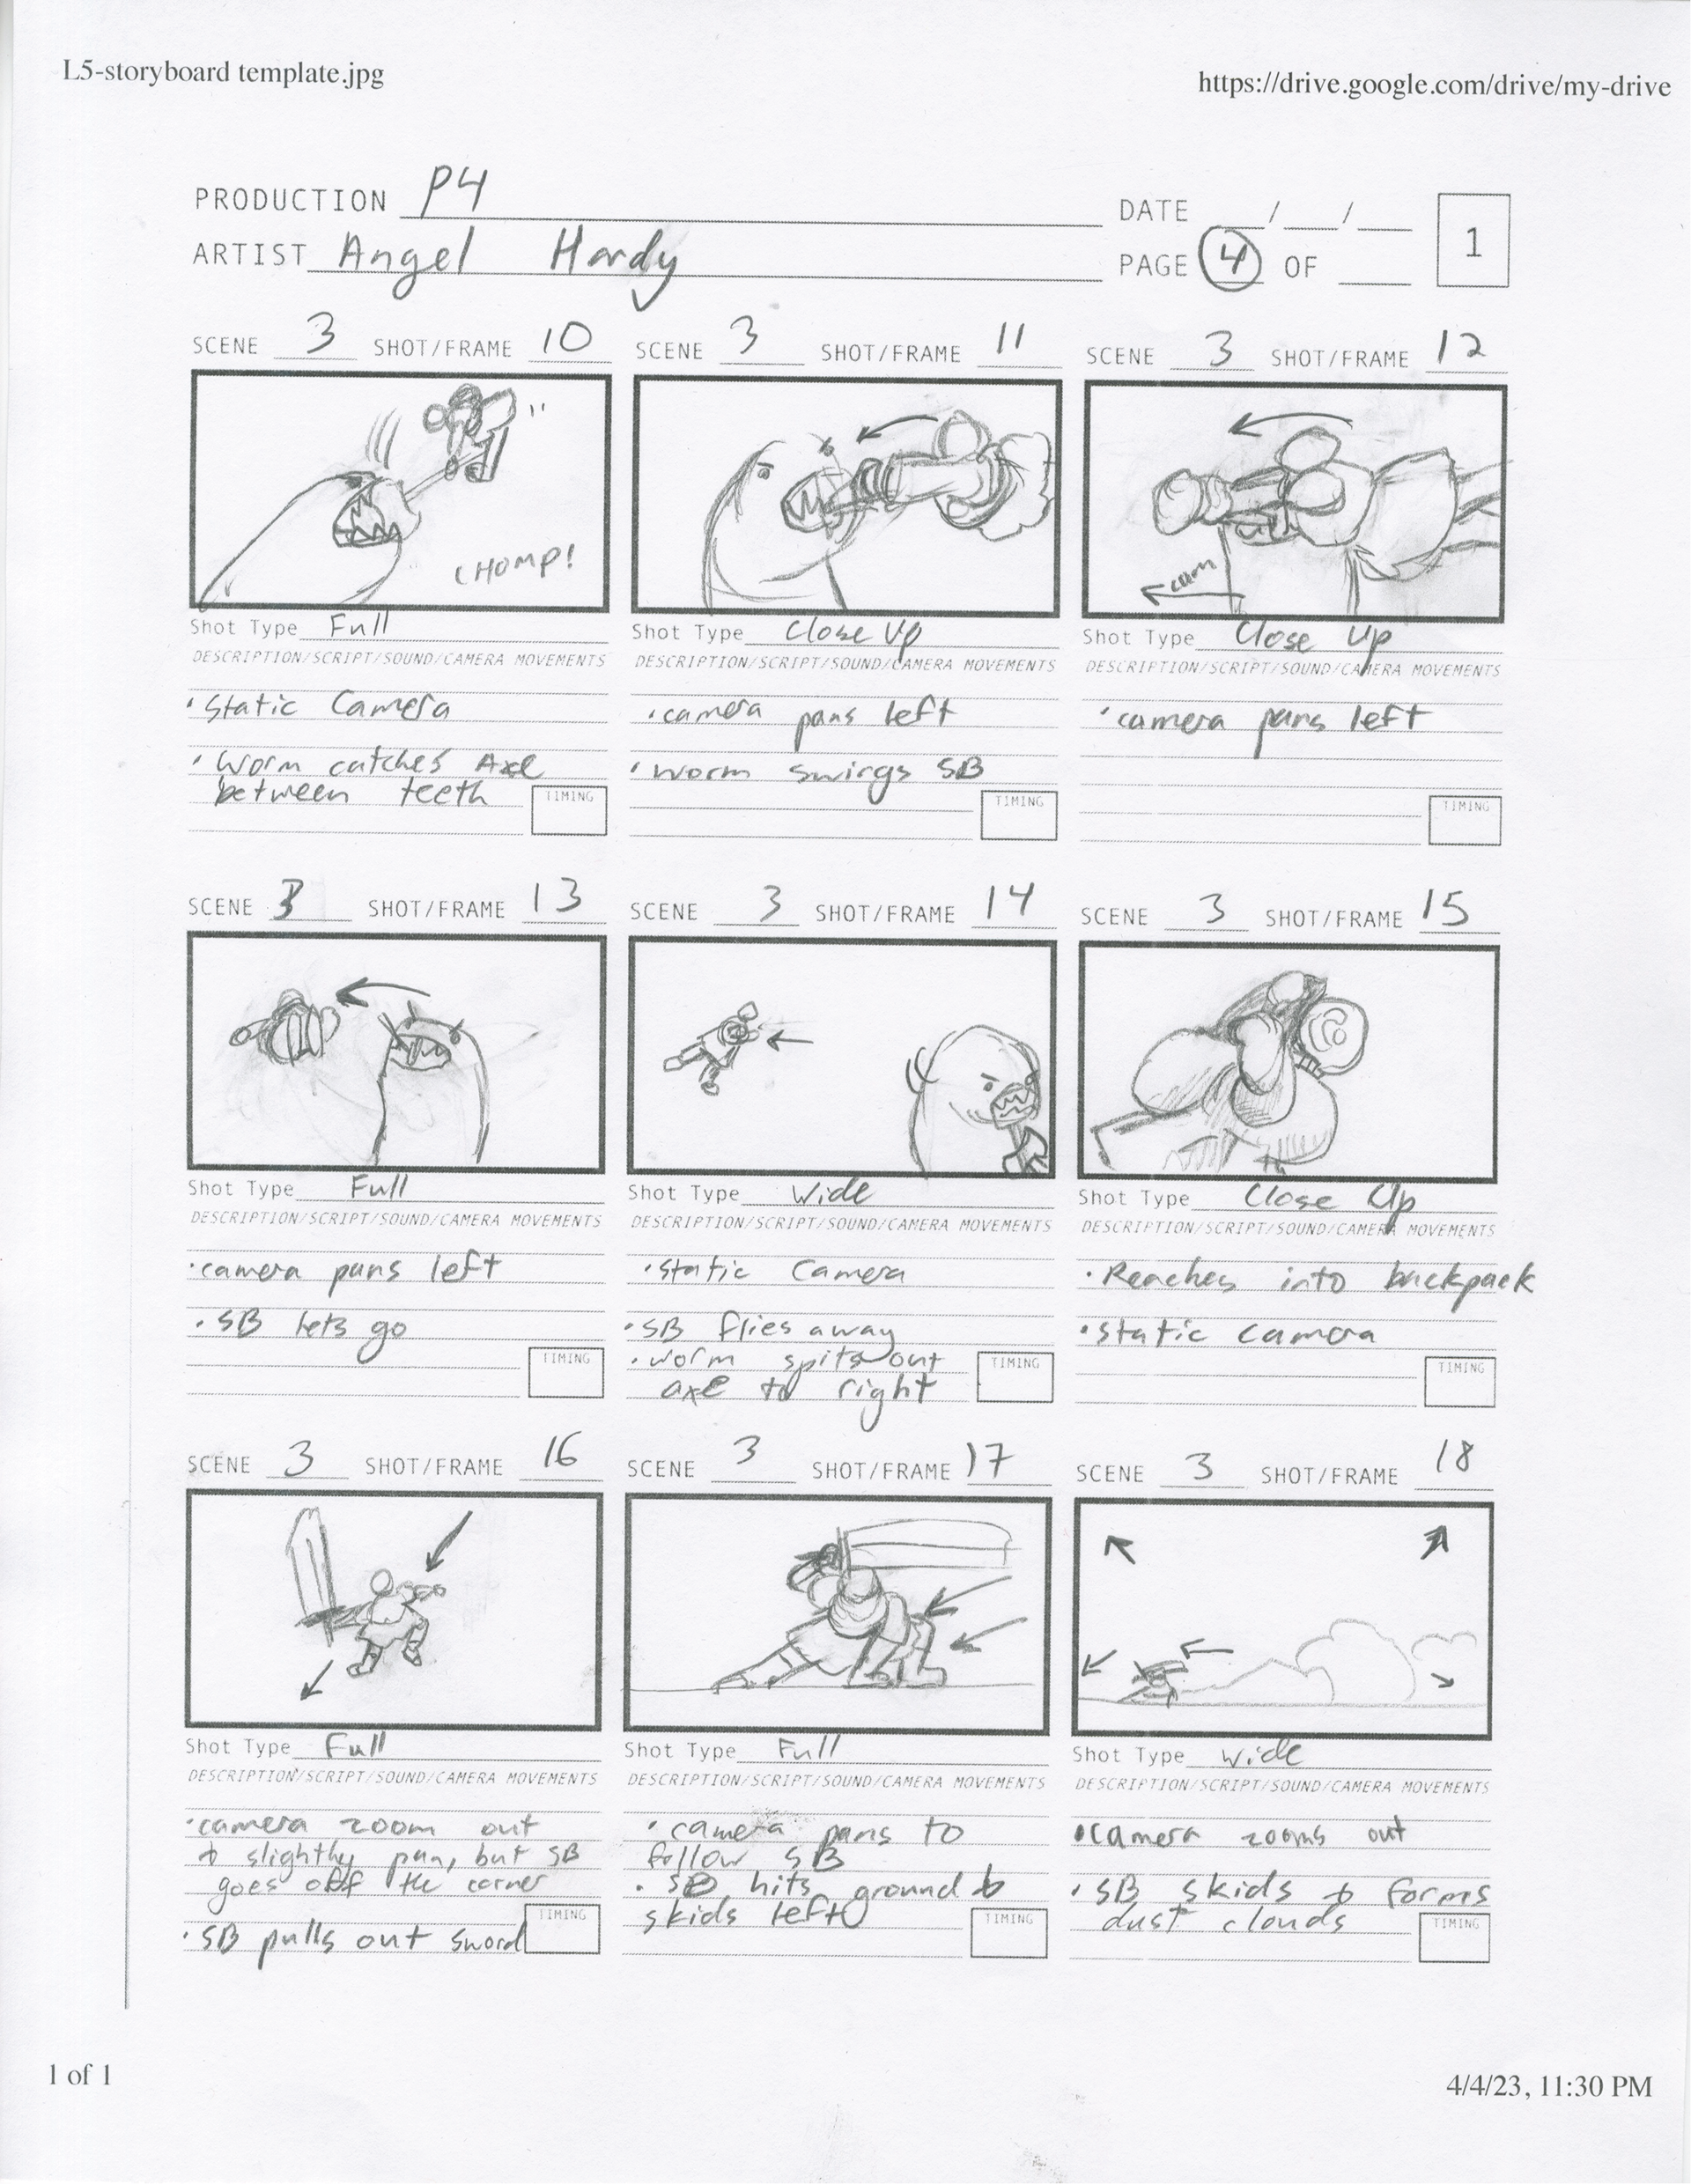 L5-storyboard template.jpg
https://drive.google.com/drive/my-drive
PRODUCTION P4
DATE / /
1
ARTIST Angel Hardy
PAGE 4 OF
SCENE 3 SHOT/FRAME 10
SCENE 3 SHOT/FRAME 11
SCENE 3 SHOT/FRAME 12
CHOMP!
cam
Shot Type Full
Shot Type Close Up
Shot Type Close Up
DESCRIPTION/SCRIPT/SOUND/CAMERA MOVEMENTS
DESCRIPTION/SCRIPT/SOUND/CAMERA MOVEMENTS
DESCRIPTION/SCRIPT/SOUND/CAMERA MOVEMENTS
• Static Camera
• Worm catches Axe
between teeth
TIMING
• camera pans left
• worm swings SB
TIMING
• camera pans left
TIMING
SCENE 3 SHOT/FRAME 13
SCENE 3 SHOT/FRAME 14
SCENE 3 SHOT/FRAME 15
Shot Type Full
Shot Type Wide
Shot Type Close Up
DESCRIPTION/SCRIPT/SOUND/CAMERA MOVEMENTS
DESCRIPTION/SCRIPT/SOUND/CAMERA MOVEMENTS
DESCRIPTION/SCRIPT/SOUND/CAMERA MOVEMENTS
• camera pans left
• SB lets go
TIMING
• static Camera
• SB flies away
• worm spits out
axe to right
TIMING
• Reaches into backpack
• static camera
TIMING
SCENE 3 SHOT/FRAME 16
SCENE 3 SHOT/FRAME 17
SCENE 3 SHOT/FRAME 18
Shot Type Full
Shot Type Full
Shot Type Wide
DESCRIPTION/SCRIPT/SOUND/CAMERA MOVEMENTS
DESCRIPTION/SCRIPT/SOUND/CAMERA MOVEMENTS
DESCRIPTION/SCRIPT/SOUND/CAMERA MOVEMENTS
• camera zoom out
& slightly pan, but SB
goes off the corner
• SB pulls out sword
TIMING
• camera pans to
follow SB
• SB hits ground &
skids left
TIMING
• camera zooms out
• SB skids & forms
dust clouds
TIMING
1 of 1
4/4/23, 11:30 PM